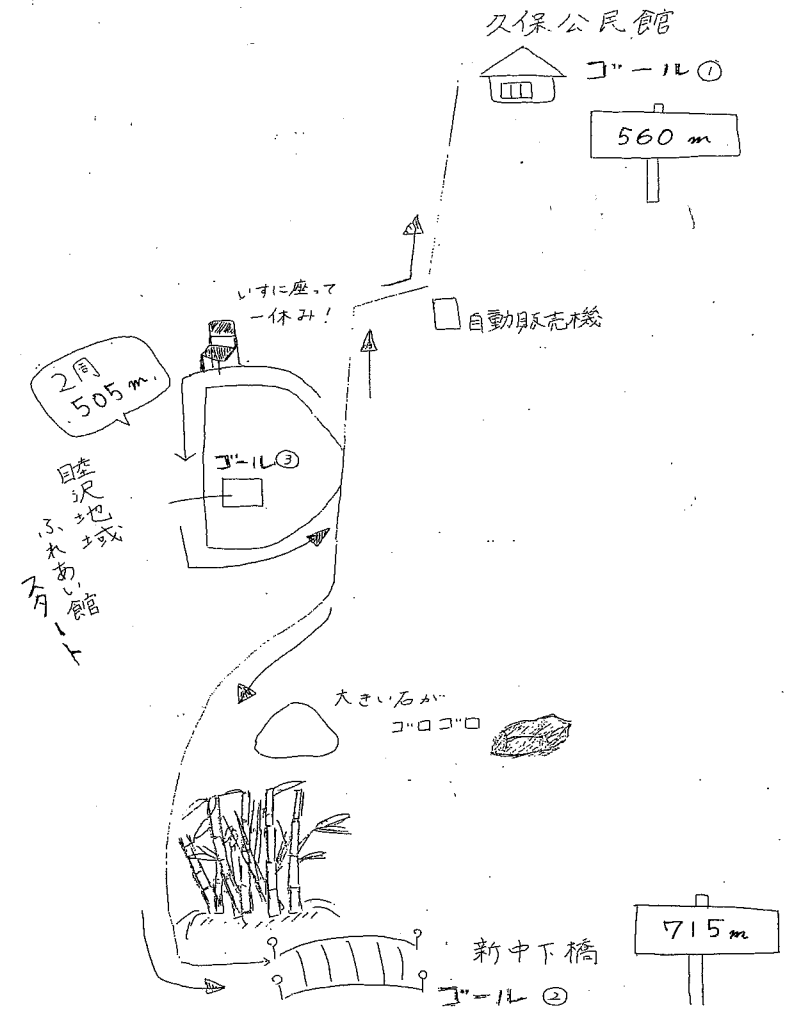 久保公民館
ゴール①
560m
いすに座って
一休み!
自動販売機
2周
505m.
ゴール③
睦沢地域
ふれあい館
スタート
大きい石が
ゴロゴロ
715m
新中下橋
ゴール②